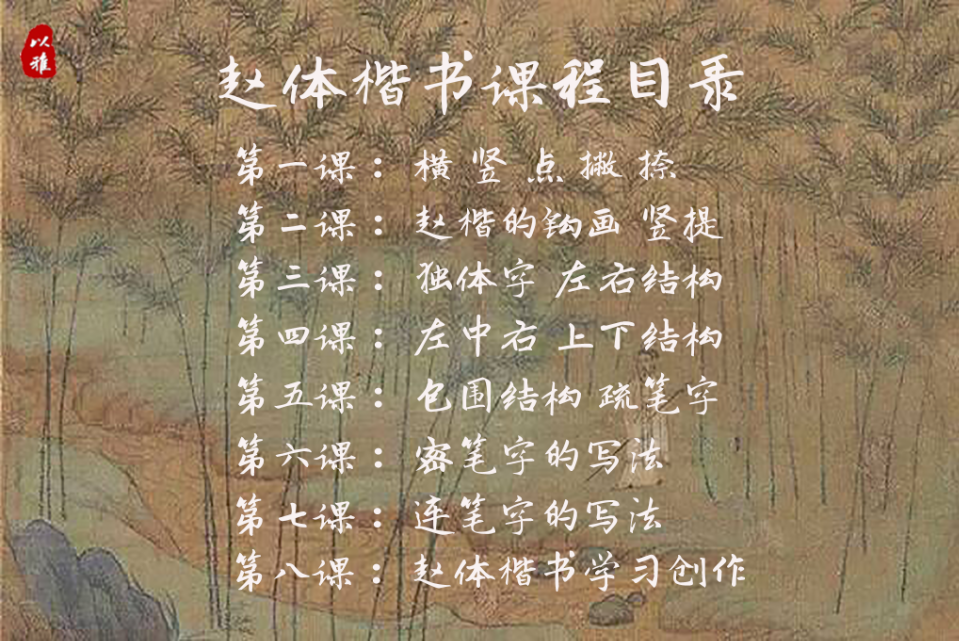 以雅
赵体楷书课程目录
第一课：横 竖 点 撇 捺
第二课：赵楷的钩画 竖提
第三课：独体字 左右结构
第四课：左中右 上下结构
第五课：包围结构 疏笔字
第六课：密笔字的写法
第七课：连笔字的写法
第八课：赵体楷书学习创作